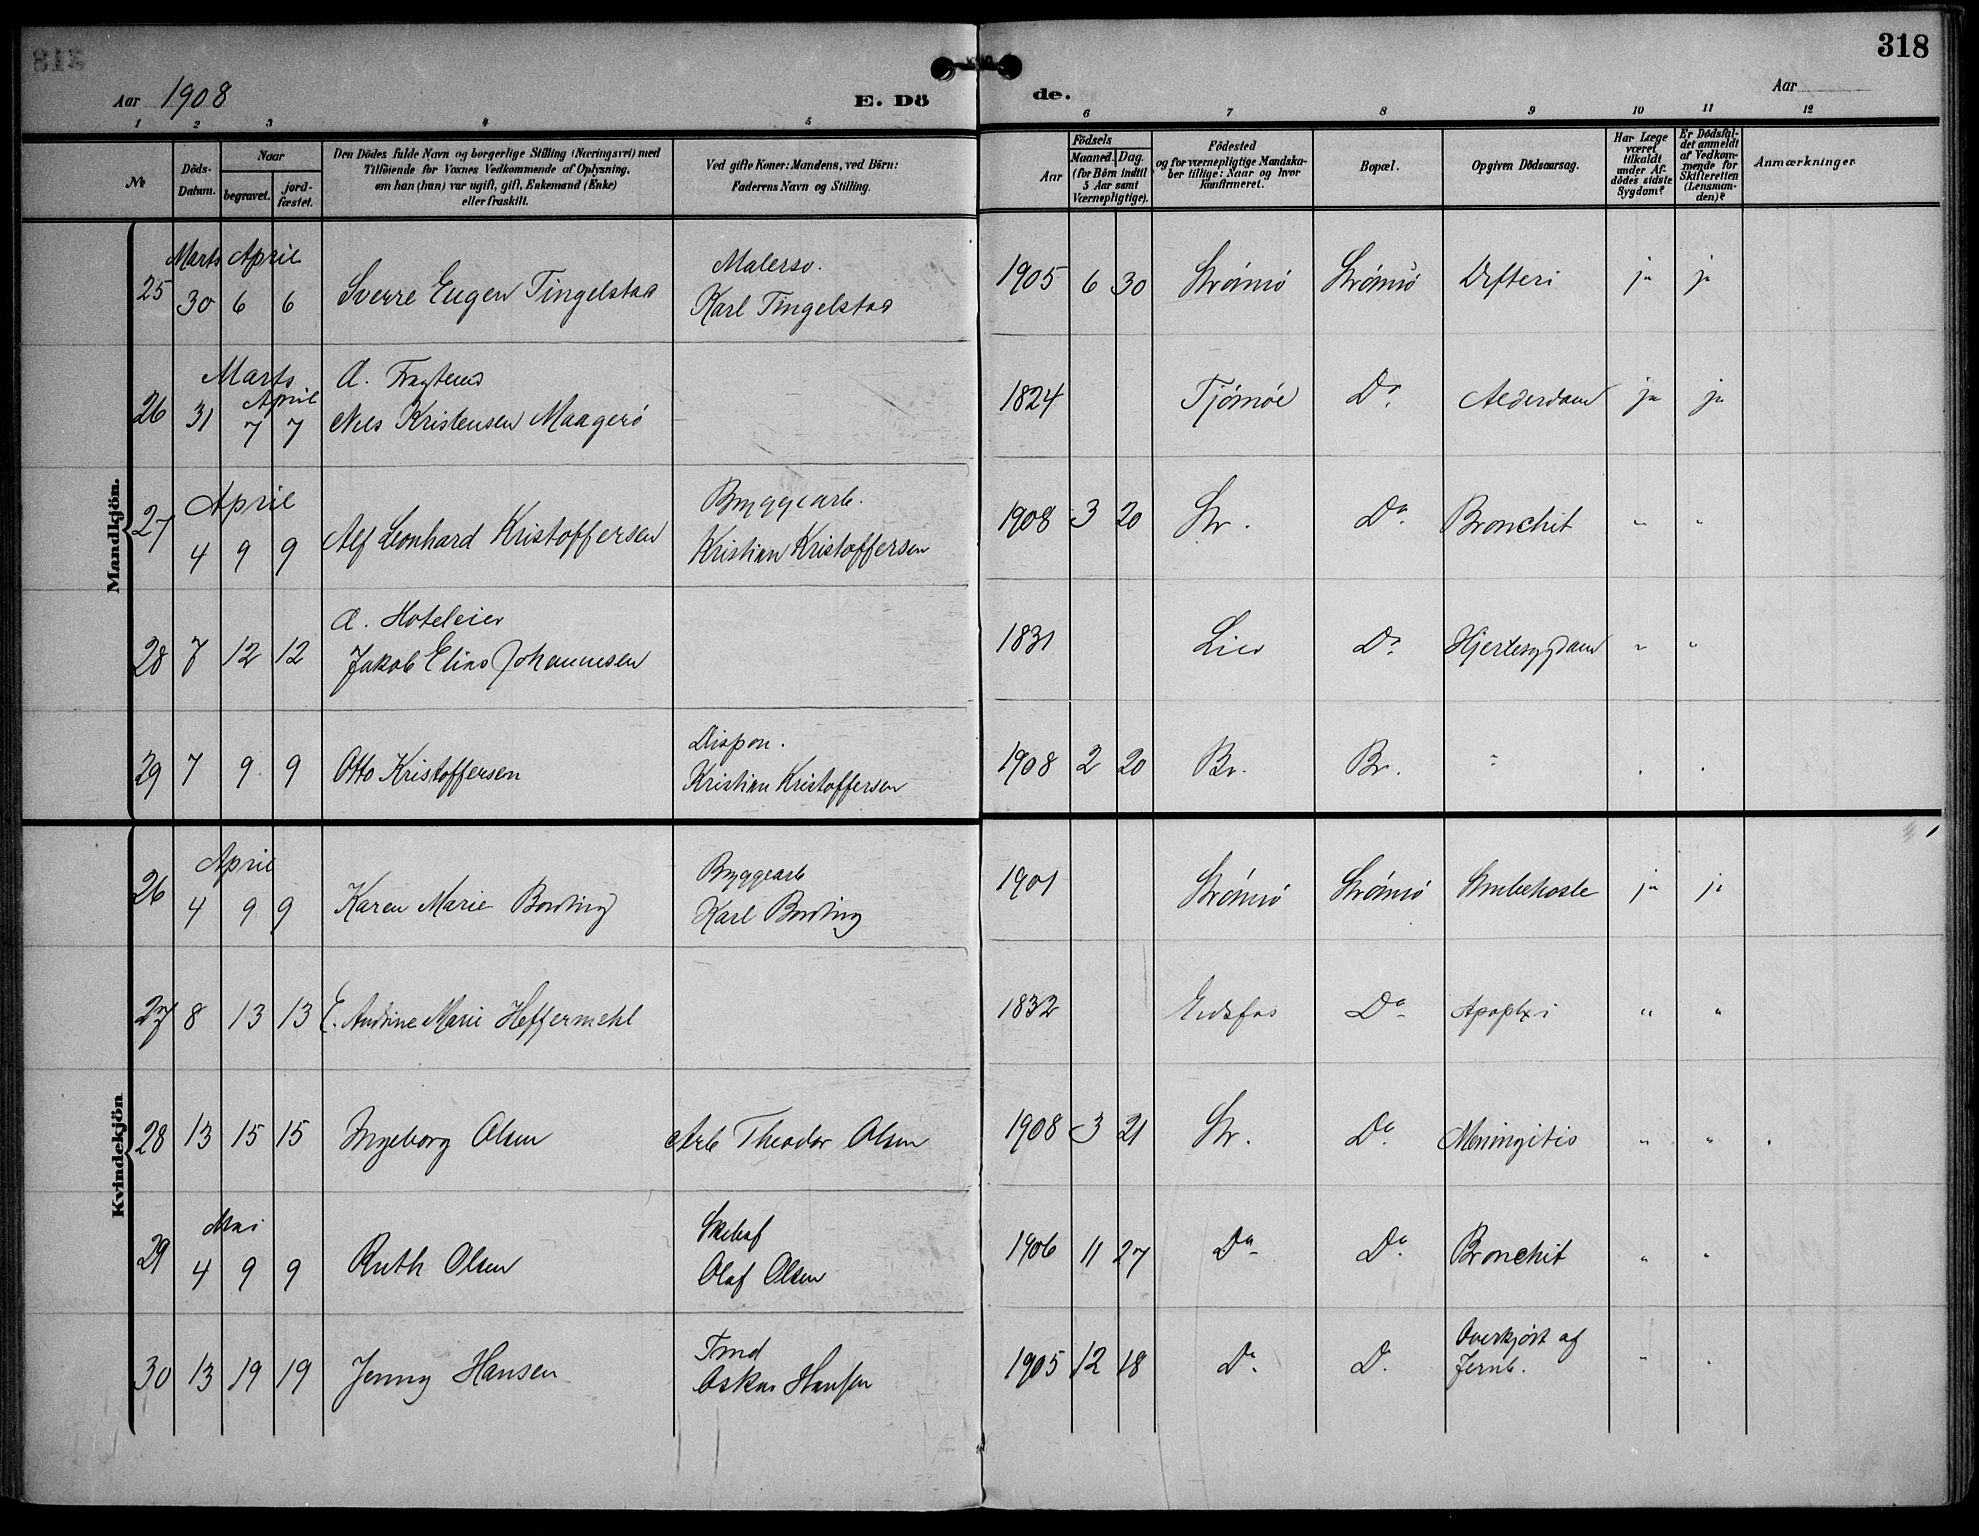 318
Aar 1908
E. Dö
de.
Aar
1 2 3 4 5
6 7 8 9 10 11 12
No
Döds-Datum.
Naar
begravet.
jord-fæstet.
Den Dödes fulde Navn og borgerlige Stilling (Næringsvei) med
Tilföiende for Voxnes Vedkommende af Oplysning,
om han (hun) var ugift, gift, Enkemand (Enke)
eller fraskilt.
Ved gifte Koner: Mandens, ved Börn:
Faderens Navn og Stilling.
Födsels
Aar
Maaned. Dag.
(for Börn indtil
5 Aar samt
Værnepligtige).
Födested
og for værnepligtige Mandska-
ber tillige: Naar og hvor
konfirmeret.
Bopæl.
Opgiven Dödsaarsag.
Har Læge
været
tilkaldt
under Af-
dödes sidste
Sygdom?
Er Dödsfal-
det anmeldt
af Vedkom-
mende for
Skifteretten
(Lensman-
den)?
Anmærkninger.
Mandkjön.
Marts April Malersv.
25 30 6 6 Sverre Eugen Tingelstad Karl Tingelstad 1905 6 30 Strømsö Strømsö Difteri ja ja
Marts April A. Fragtem
26 31 7 7 Nils Kristensen Maagerö 1824 Tjömöe Do. Alderdom ja ja
April Bryggearb.
27 4 9 9 Alf Leonhard Kristoffersen Kristian Kristoffersen 1908 3 20 Str. Do. Bronchit " "
A. Hoteleier
28 7 12 12 Jakob Elias Johannesen 1831 Lier Do. Hjertesygdom " "
Dispon.
29 7 9 9 Otto Kristoffersen Kristian Kristoffersen 1908 2 20 Br. Br. "
Kvindekjön
April Bryggearb
26 4 9 9 Karen Marie Bording Karl Bording 1901 Strømsö Strømsö Strubehoste ja ja
27 8 13 13 E. Andrine Marie Heffermehl 1832 Eidsfos Do Apoplxi " "
28 13 15 15 Ingeborg Olsen Arb Theodor Olsen 1908 3 21 Str. Do. Meningitis " "
Mai
29 4 9 9 Ruth Olsen Olaf Olsen 1906 11 27 Do Do. Bronchit " "
Tmd Overkjørt af
30 13 19 19 Jenny Hansen Oskar Hansen 1905 12 18 Do. D. Jernb. "